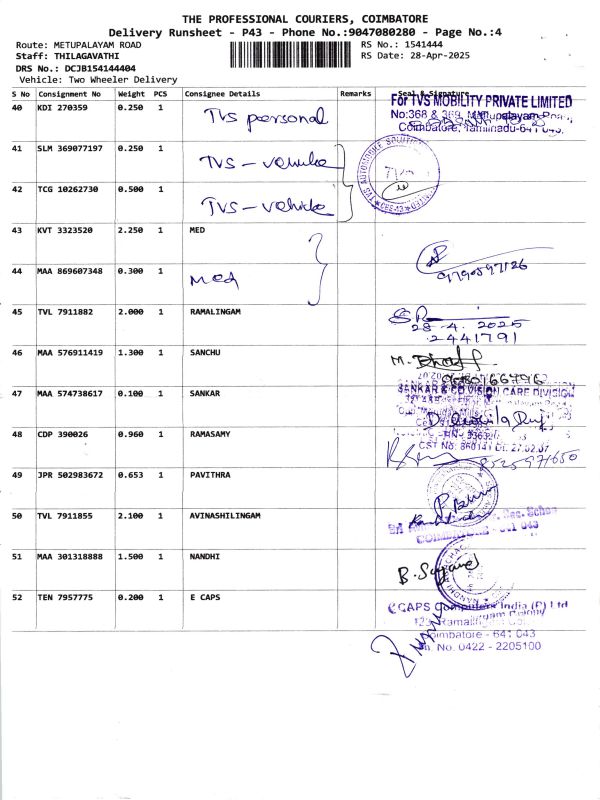 THE PROFESSIONAL COURIERS, COIMBATORE
Delivery Runsheet - P43 - Phone No.:9047080280 - Page No.:4
Route: METUPALAYAM ROAD RS No.: 1541444
Staff: THILAGAVATHI RS Date: 28-Apr-2025
DRS No.: DCJB154144404
Vehicle: Two Wheeler Delivery
S No Consignment No Weight PCS Consignee Details Remarks Seal & Signature
40 KDI 270359 0.250 1 TVS personal For TVS MOBILITY PRIVATE LIMITED
No:368 & 369, Mettupalayam Road,
Coimbatore, Tamilnadu-641 043.
41 SLM 369077197 0.250 1 TVS - vehicle
42 TCG 10262730 0.500 1 TVS - vehicle
43 KVT 3323520 2.250 1 MED
44 MAA 869607348 0.300 1 Med 9790597126
45 TVL 7911882 2.000 1 RAMALINGAM
28-4. 2025
2441791
46 MAA 576911419 1.300 1 SANCHU
47 MAA 574738617 0.100 1 SANKAR SANKAR & CO VISION CARE DIVISION
48 CDP 390026 0.960 1 RAMASAMY
8525971650
49 JPR 502983672 0.653 1 PAVITHRA
50 TVL 7911855 2.100 1 AVINASHILINGAM
COIMBATORE - 641 043
51 MAA 301318888 1.500 1 NANDHI
52 TEN 7957775 0.200 1 E CAPS CAPS Computers India (P) Ltd
Coimbatore - 641 043
Ph. No. 0422 - 2205100